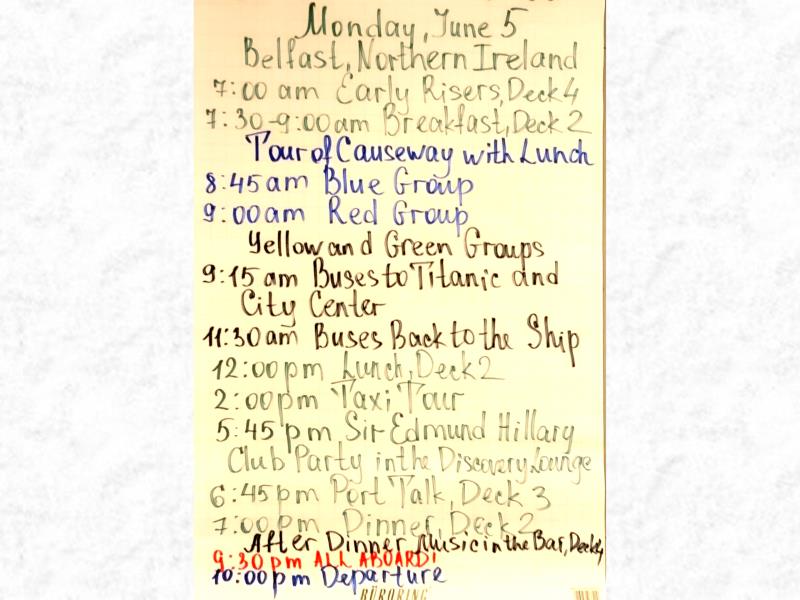 Monday, June 5
Belfast, Northern Ireland
7:00 am Early Risers, Deck 4
7:30-9:00am Breakfast, Deck 2
Tour of Causeway with Lunch
8:45am Blue Group
9:00am Red Group
Yellow and Green Groups
9:15 am Buses to Titanic and
City Center
11:30am Buses Back to the Ship
12:00pm Lunch, Deck 2
2:00pm Taxi Tour
5:45 pm Sir Edmund Hillary
Club Party in the Discovery Lounge
6:45pm Port Talk, Deck 3
7:00pm Dinner, Deck 2
After Dinner Music in the Bar, Deck 4
9:30pm ALL ABOARD!
10:00pm Departure
BÜRORING